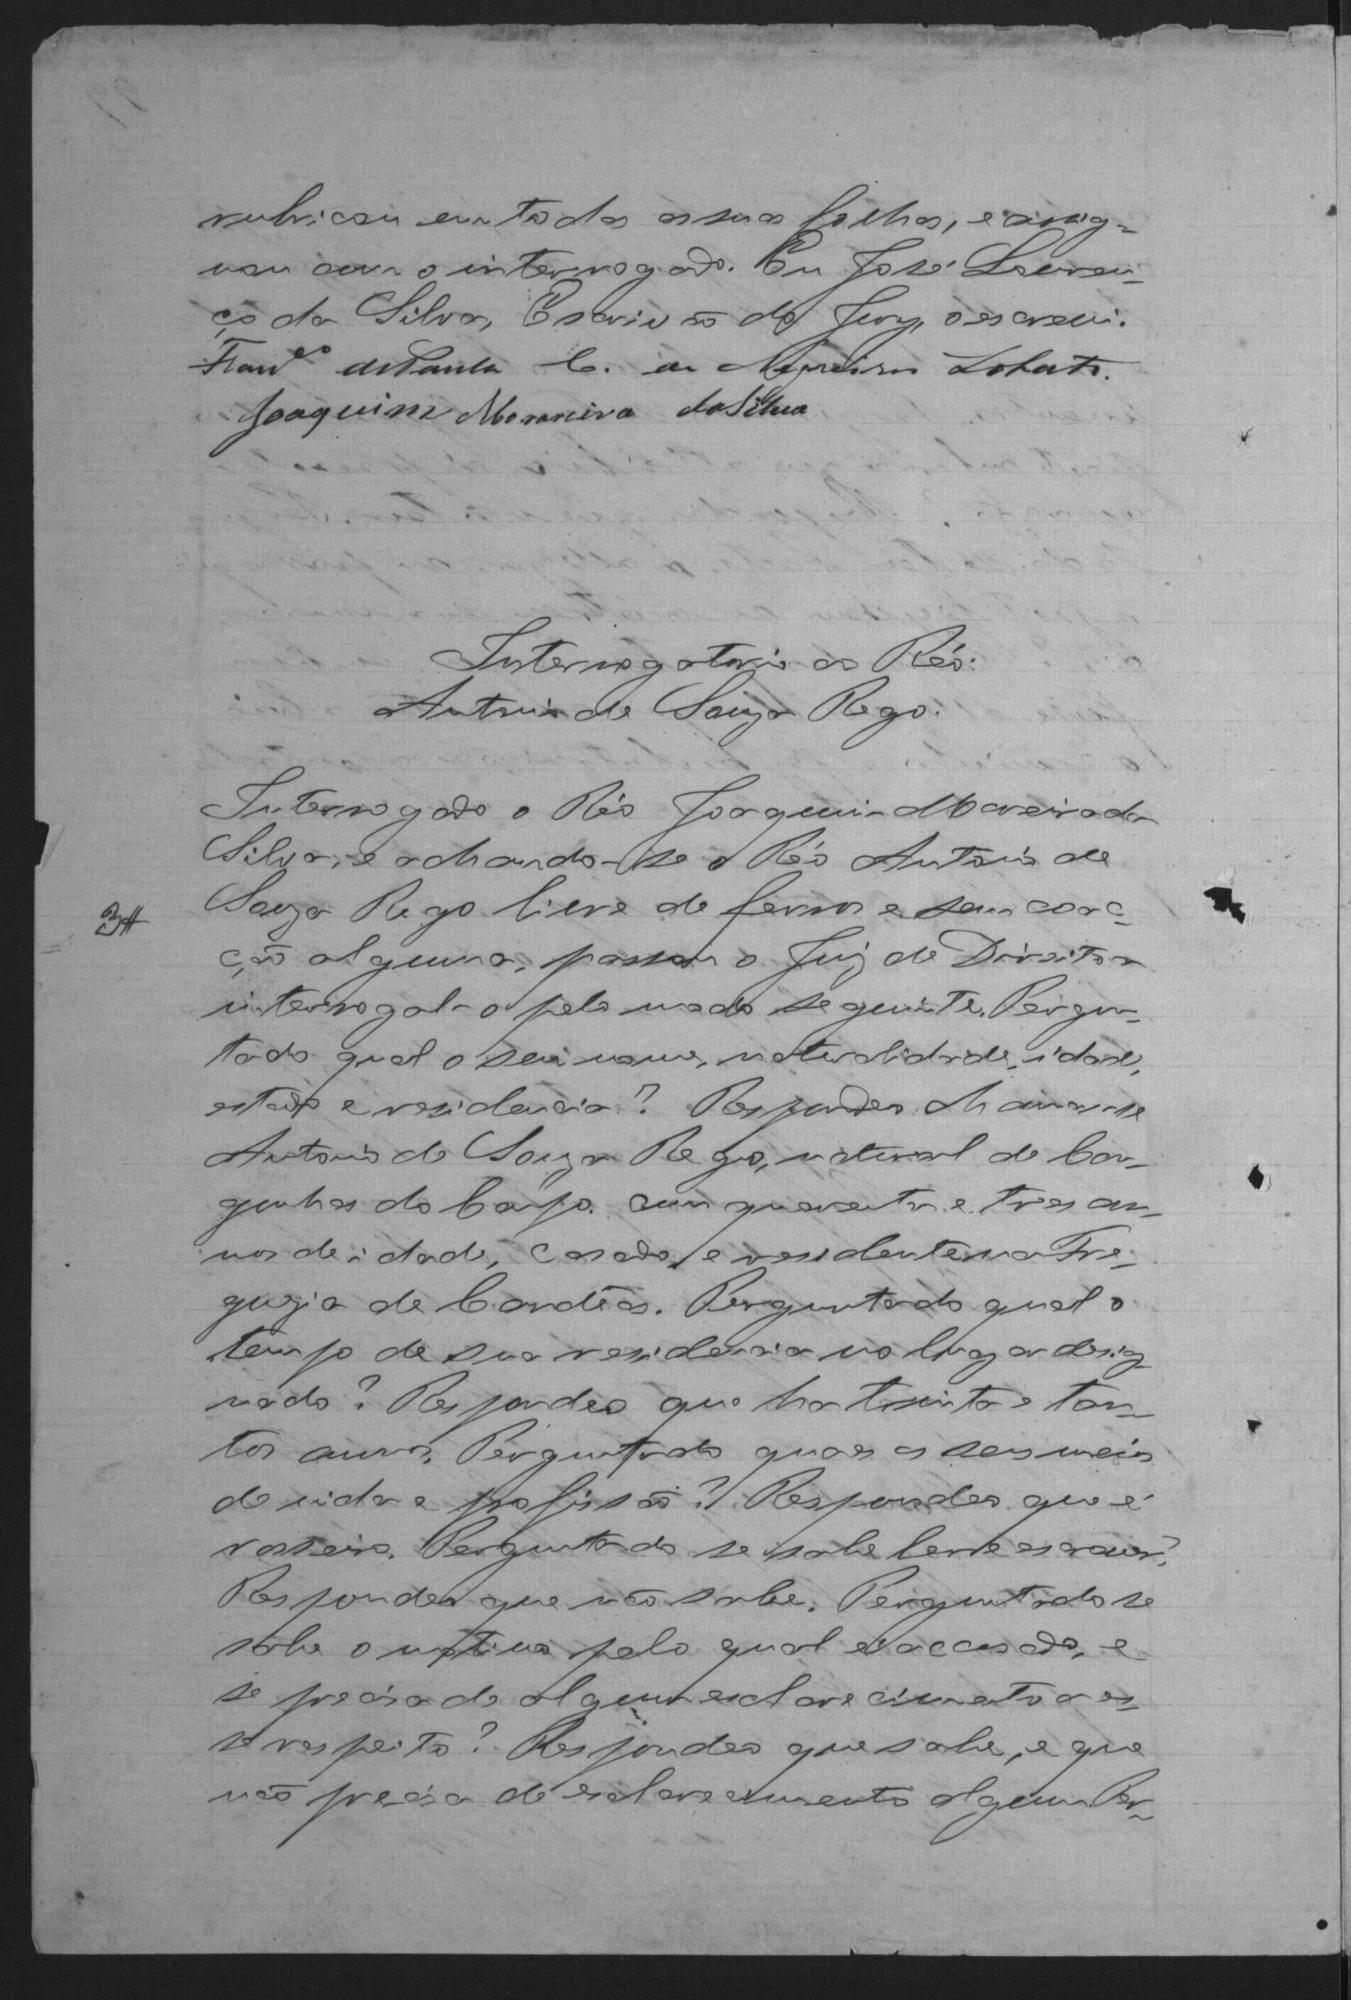 rubricou em todas as suas folhas, e assig-
nou com o interrogado. Eu José Louren-
ço da Silva, Escrivão do Jury, o escrevi.
Franco de Paula C. de Negreiros Lobato.
Joaquim Moraneira da Silva
Interrogatorio ao Réo:
Antonio de Souza Rego.
Interrogado o Réo Joaquim Moreira da
Silva, e achando-se o Réo Antonio de
Souza Rego livre de ferros e sem coac-
ção alguma, passou o Juiz de Direito a
interrogal-o pelo modo seguinte. Pergun-
tado qual o seu nome, naturalidade, idade,
estado e residencia? Respondeo chamar-se
Antonio de Souza Rego, natural de Con-
gonhas do Campo, com quarenta e tres an-
nos de idade, casado, e residente na Fre-
guezia de Candêas. Perguntado qual o
tempo de sua residencia no lugar desig-
nado? Respondeo que ha trinta e tan-
tos annos. Perguntado quaes os seus meios
de vida e profissão? Respondeo que é
roceiro. Perguntado se sabe ler e escrever?
Respondeo que não sabe. Perguntado se
sabe o motivo pelo qual é accusado, e
se precisa de algum esclarecimento a es-
se respeito? Respondeo que sabe, e que
não precisa de esclarecimento algum. Per-